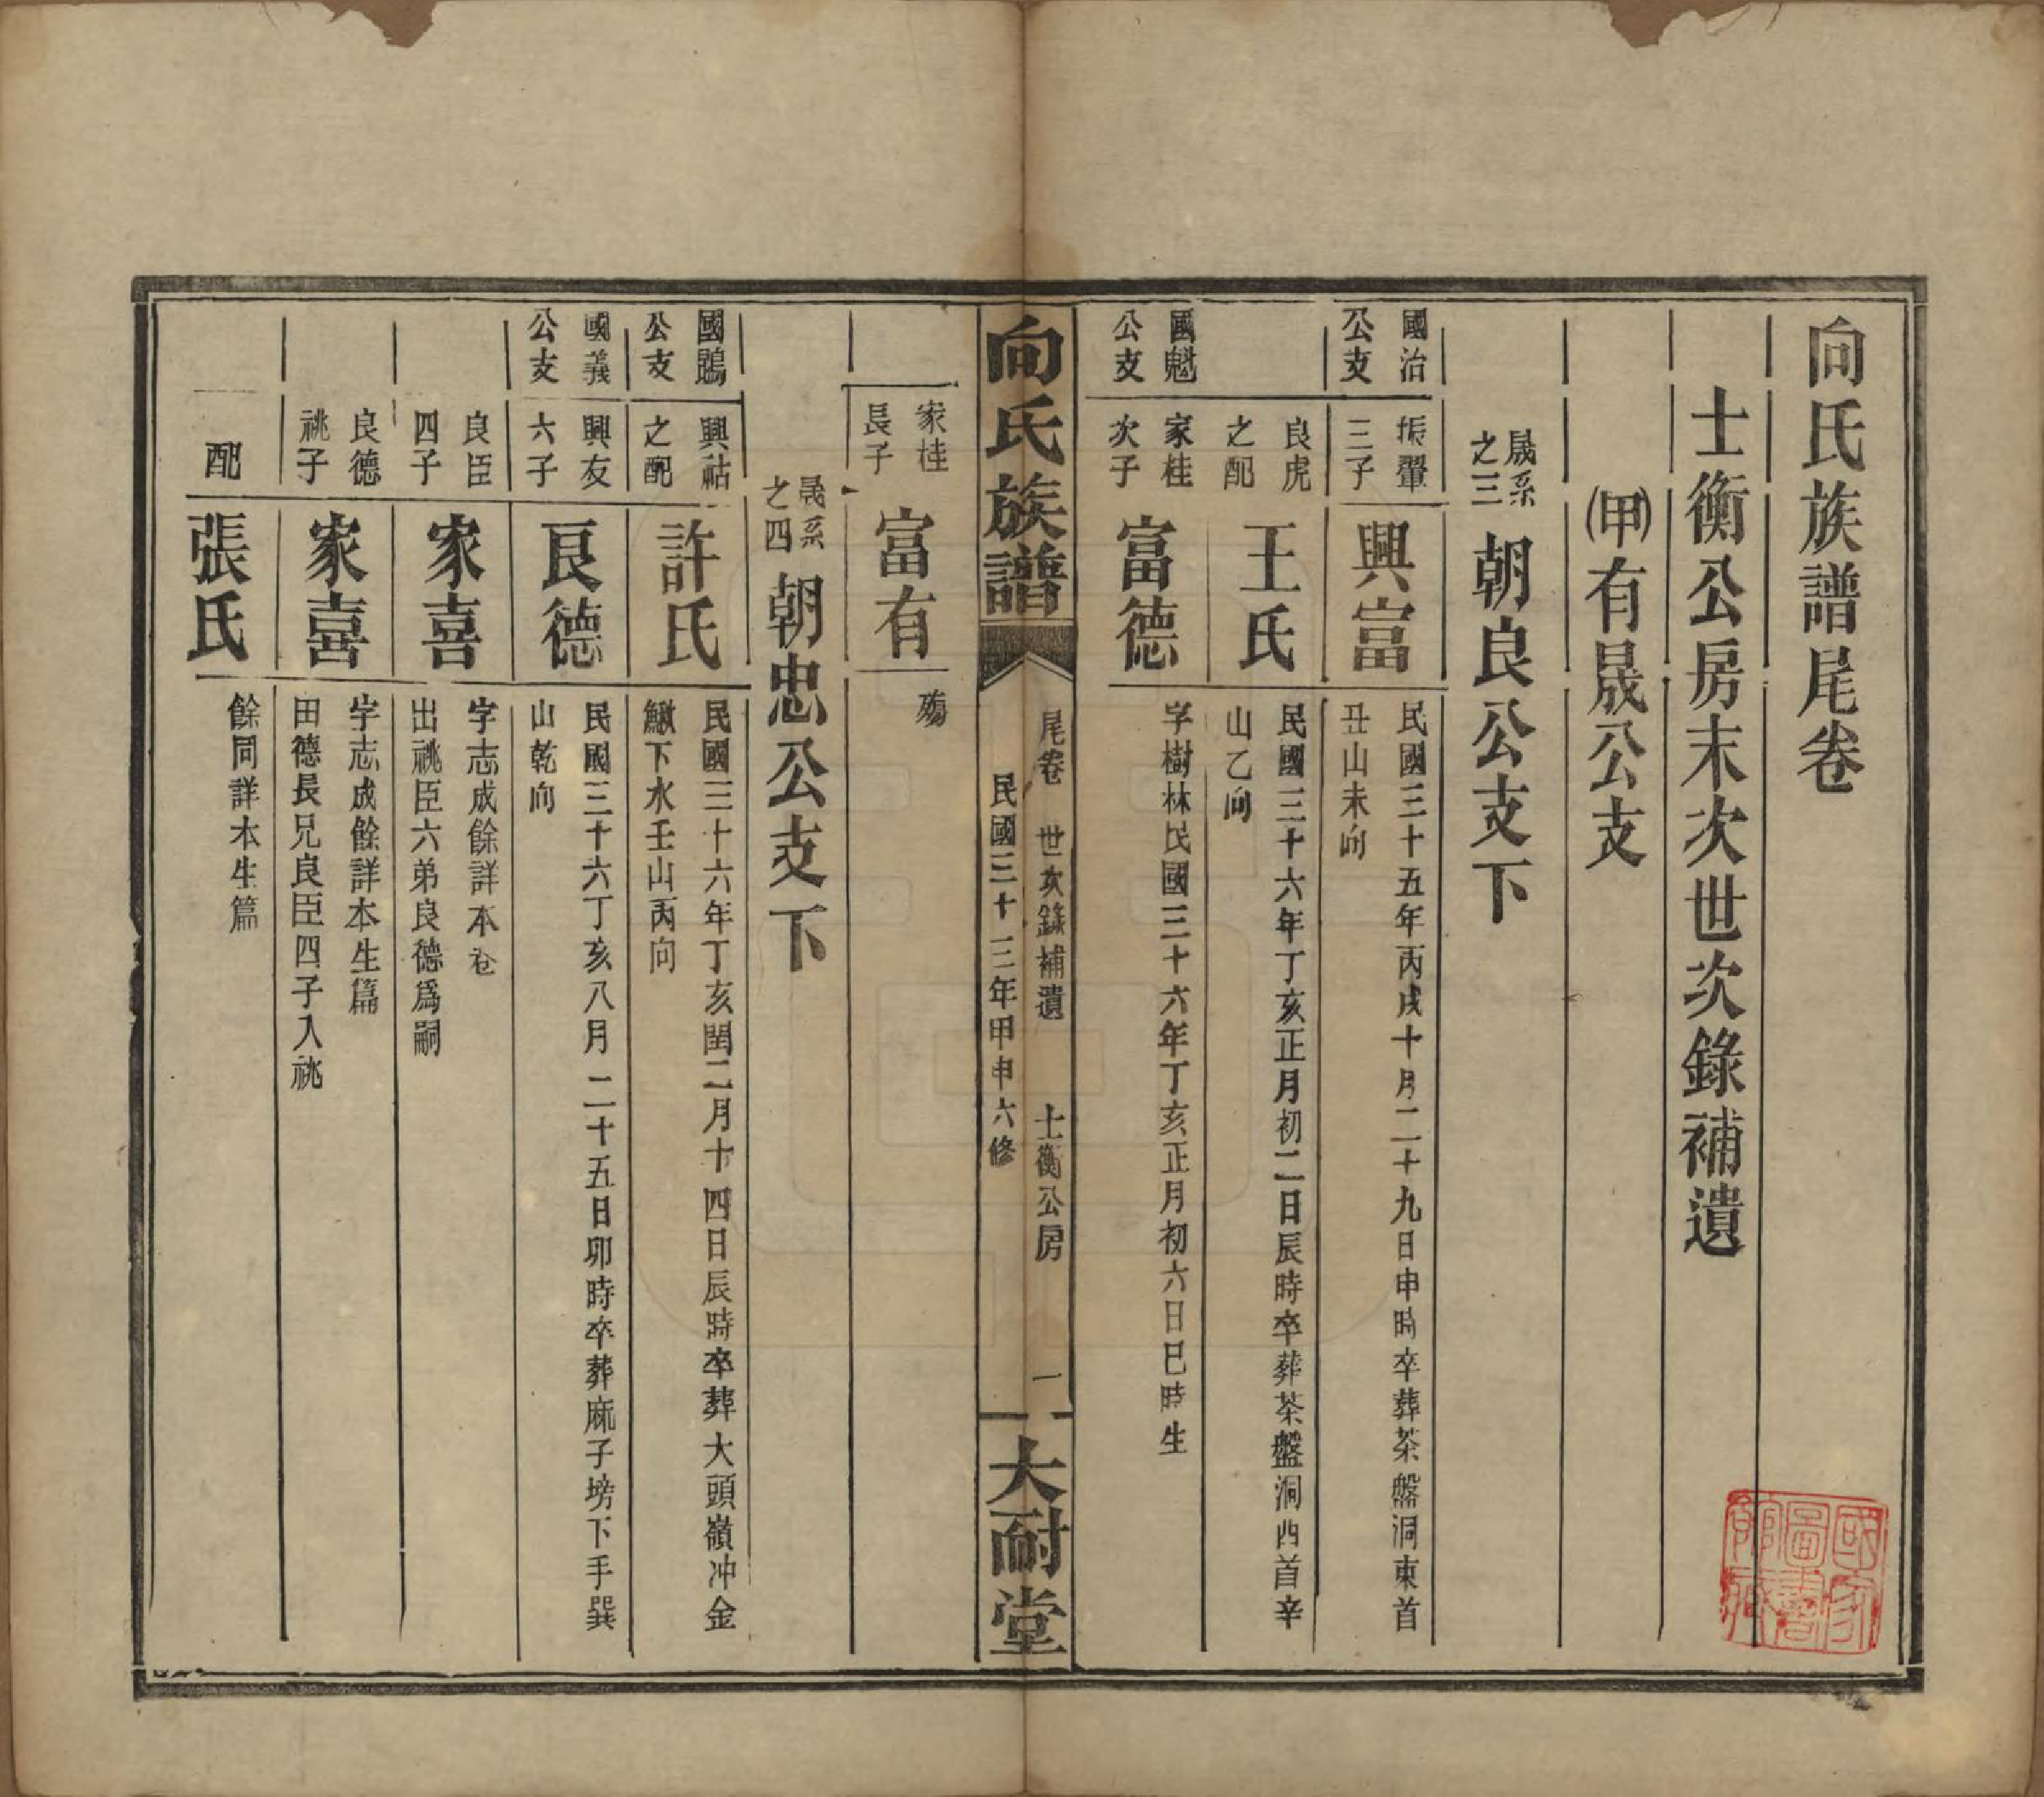 向氏族譜尾卷
士衡公房末次世次錄補遺
㈠甲㈠有晟公支
晟系之三 朝良公支下
國治公支
振翬三子
興富
民國三十五年丙戌十月二十九日申時卒葬茶盤洞東首
丑山未向
良虎之配
王氏
民國三十六年丁亥正月初二日辰時卒葬茶盤洞西首辛
山乙向
國魁公支
家桂次子
富德
字樹林民國三十六年丁亥正月初六日巳時生
向氏族譜
尾卷 世次錄補遺 士衡公房 一
民國三十三年甲申六修
大耐堂
家桂長子
富有
殤
晟系之四 朝忠公支下
國鵾公支
興祜之配
許氏
民國三十六年丁亥閏二月十四日辰時卒葬大頭嶺冲金
鰍下水壬山丙向
國義公支
興友六子
良德
民國三十六丁亥八月二十五日卯時卒葬麻子塝下手巽
山乾向
良臣四子
家喜
字志成餘詳本卷
出祧臣六弟良德爲嗣
良德祧子
家喜
字志成餘詳本生篇
田德長兄良臣四子入祧
配
張氏
餘同詳本生篇
國家圖書館藏